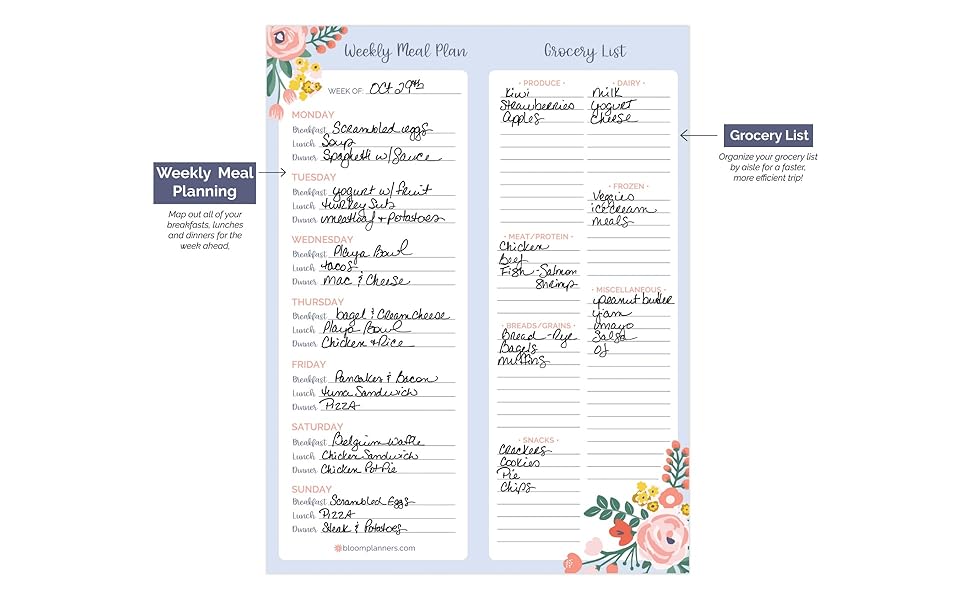 Weekly Meal Plan
WEEK OF: Oct 29th
MONDAY
Breakfast Scrambled eggs
Lunch Soup
Dinner Spaghetti w/ Sauce
TUESDAY
Breakfast yogurt w/ fruit
Lunch turkey Sub
Dinner meatloaf + Potatoes
WEDNESDAY
Breakfast Playa Bowl
Lunch tacos
Dinner Mac & Cheese
THURSDAY
Breakfast bagel & Cream cheese
Lunch Playa Bowl
Dinner Chicken + Rice
FRIDAY
Breakfast Pancakes & Bacon
Lunch tuna Sandwich
Dinner PIZZA
SATURDAY
Breakfast Belgium waffle
Lunch Chicken Sandwich
Dinner Chicken Pot Pie
SUNDAY
Breakfast Scrambled Eggs
Lunch PIZZA
Dinner Steak & Potatoes
bloomplanners.com
Grocery List
• PRODUCE •
Kiwi
Strawberries
Apples
• MEAT/PROTEIN •
Chicken
Beef
Fish - Salmon
Shrimp
• BREADS/GRAINS •
Bread - Rye
Bagels
muffins
• SNACKS •
Crackers
Cookies
Pie
Chips
• DAIRY •
Milk
yogurt
Cheese
• FROZEN •
Veggies
ice cream
meals
• MISCELLANEOUS •
peanut butter
jam
mayo
Salsa
OJ
Weekly Meal
Planning
Map out all of your
breakfasts, lunches
and dinners for the
week ahead.
Grocery List
Organize your grocery list
by aisle for a faster,
more efficient trip!